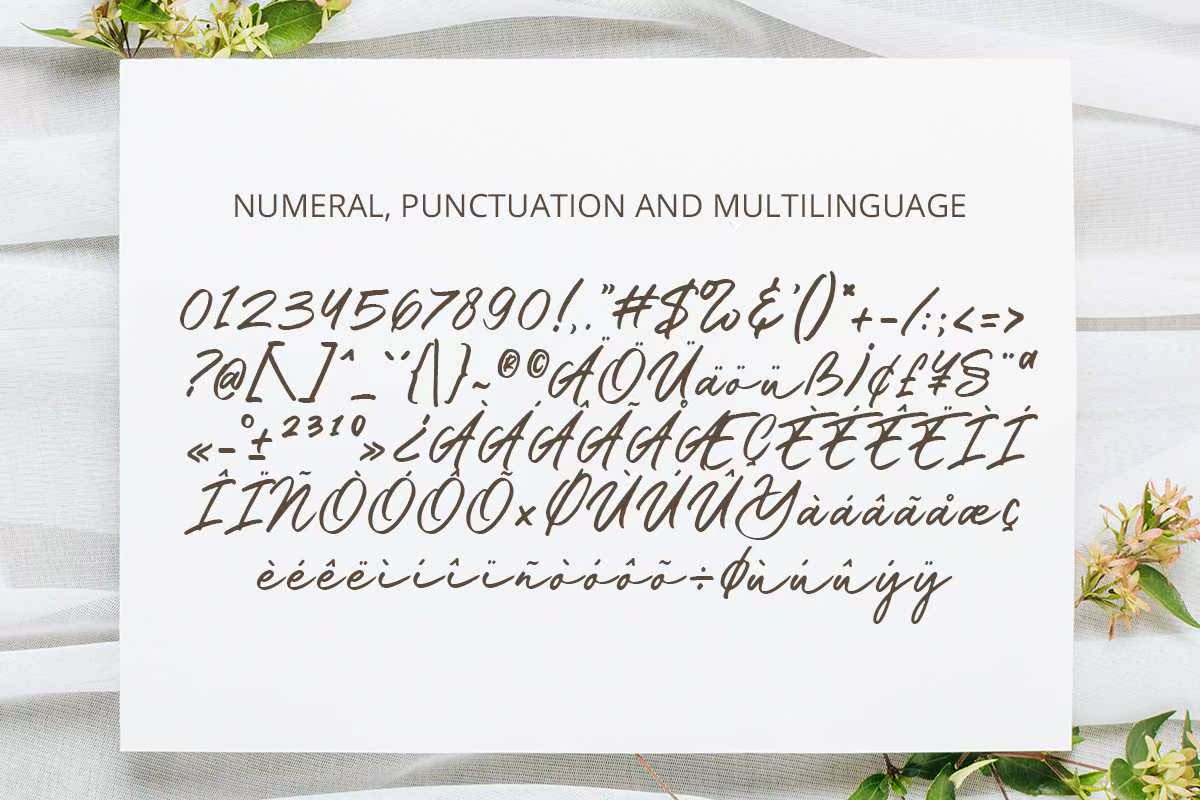 NUMERAL, PUNCTUATION AND MULTILINGUAGE
01234567890!,.”#$%&'()*+-/:;<=>
?@[\]^_`´{|}~®©ÄÖÜäöüß¡¢£¥§¨ª
«-°±²³¹⁰»¿ÀÁÂÃÅÆÇÈÉÊËÌÍ
ÎÏÑÒÓÔÕ×ØÙÚÛÝàáâãåæç
èéêëìíîïñòóôõ÷øùúûýÿ